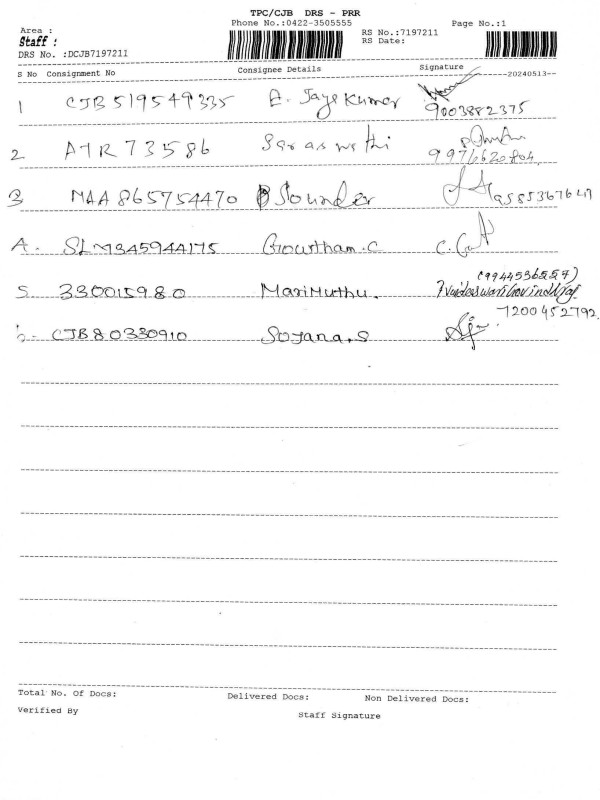 TPC/CJB DRS - PRR
Phone No.:0422-3505555 Page No.:1
Area :
Staff :
RS No.:7197211
RS Date:
DRS No. :DCJB7197211
S No Consignment No Consignee Details Signature --20240513--
1 CJB519549335 E. Jaya Kumar
9003882375
2 ATR73586 Saraswathi
3 MAA865754470 Sounder 9585367647
4. SLM345944175 Gowtham.C C.
5. 330015980 MariMuthu. (9944536557)
7200452792
6. CJB80330910 Sojana.S
Total No. Of Docs: Delivered Docs: Non Delivered Docs:
Verified By Staff Signature